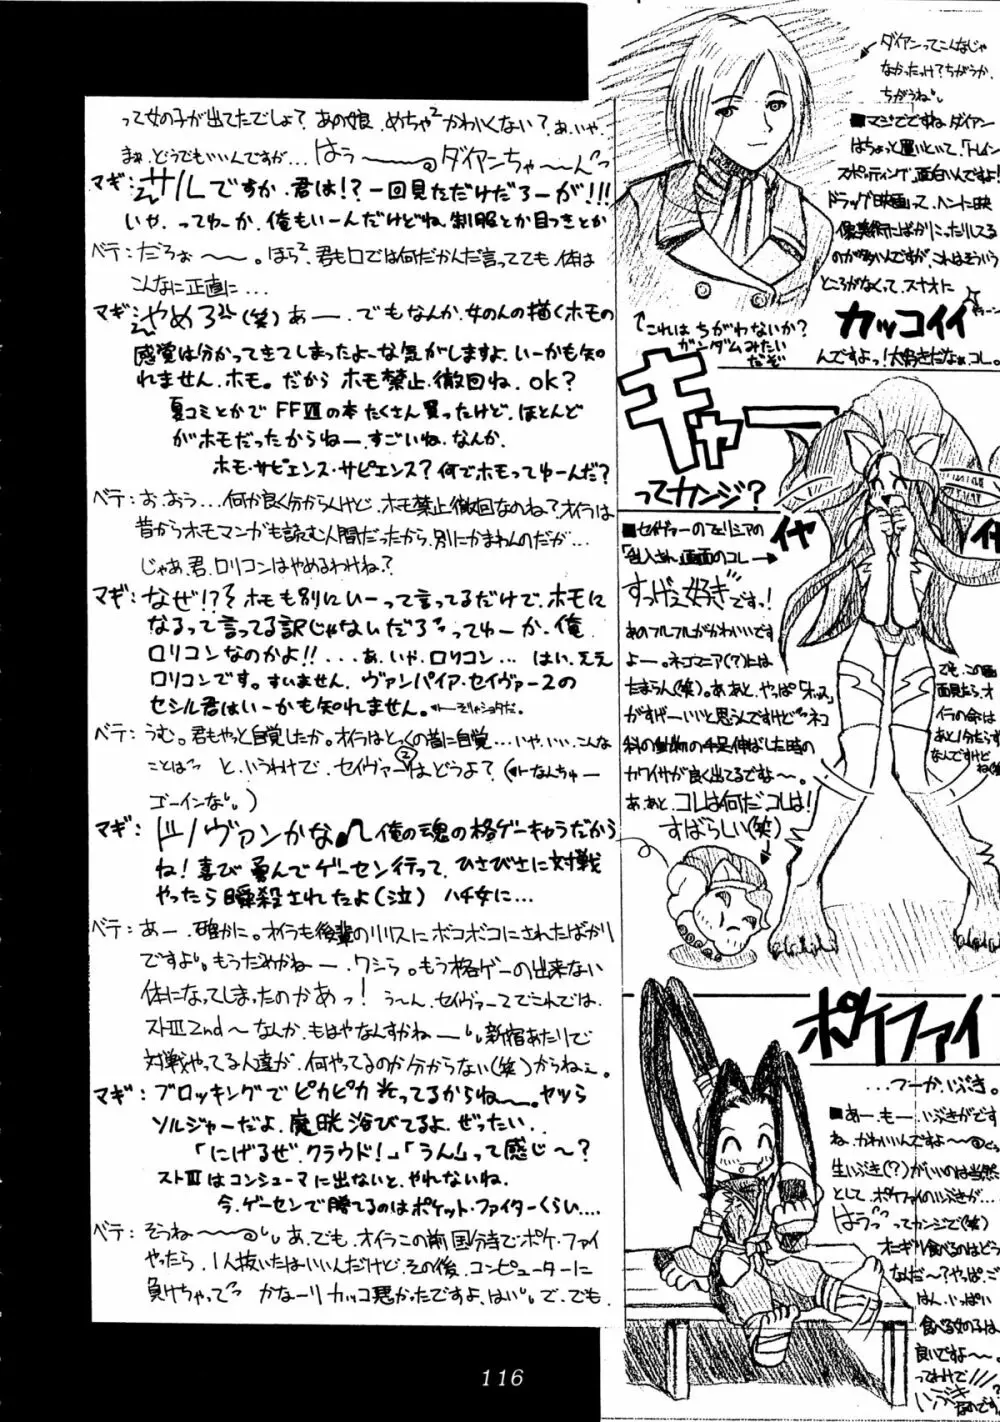 って女の子が出てたでしょ？あの娘、めちゃ²かわいくない？あ、いや、
まぁ、どうでもいいんですが…はぅ〜〜〜ダイアンちゃ〜ん
マギ：サルですか、君は!? 一回見ただけだろーが!!!
いや、ってゆーか、俺もいーんだけどね、制服とか目つきとか
ベテ：だろぉ〜〜。ほら²、君も口では何だかんだ言ってても、体は
こんなに正直に…
マギ：やめろ(笑) あー、でもなんか、女のんの描くホモの
感覚は分かってきてしまったよーな気がしますよ、いーかも知
れません、ホモ。だからホモ禁止、撤回ね、OK？
夏コミとかでFFⅦの本たくさん買ったけど、ほとんど
がホモだったからねー、すごいね、なんか、
ホモ・サピエンス・サピエンス？何でホモってゆーんだ？
ベテ：お、おう…何か良く分からんけど、ホモ禁止撤回なのね？オイラは
昔からホモマンガも読む人間だったから、別にかまわんのだが…
じゃあ、君、ロリコンはやめるわけね？
マギ：なぜ!? ホモも別にいーって言ってるだけで、ホモに
なるって言ってる訳じゃないだろってゆーか、俺
ロリコンなのかよ!! …あ、いや、ロリコン… はい、ええ
ロリコンです。すいません、ヴァンパイア・セイヴァー2の
セシル君はいーかも知れません。←ーそりゃショタだ。
ベテ：うむ。君もやっと自覚したか。オイラはとっくの昔に自覚…いや、いい、こんな
ことは と、いうわけで、セイヴァー2はどうよ？(←なんちゅー
ゴーインな)
マギ：ドノヴァンかな 俺の魂の格ゲーキャラだから
ね！喜び勇んでゲーセン行って、ひさびさに対戦
やったら瞬殺されたよ(泣) ハチ女に…
ベテ：あー、確かに。オイラも後輩のリリスにボコボコにされたばかり
ですよ。もうだめかねー、ワシら。もう格ゲーの出来ない
体になってしまったのかあっ！ う〜ん、セイヴァー2でこれでは、
ストⅢ2nd〜なんか、もはやなんすかねー、新宿あたりで
対戦やってる人達が、何やってるのか分からない(笑)からねぇ。
マギ：ブロッキングでピカピカ光ってるからねー、ヤツら
ソルジャーだよ、魔晄浴びてるよ、ぜったい、
「にげるぜ、クラウド！」「うん」って感じ〜？
ストⅢはコンシューマに出ないと、やれないね、
今、ゲーセンで勝てるのはポケット・ファイターくらい…
ベテ：そうね〜〜、あ、でも、オイラこの前国分寺でポケ・ファイ
やったら、1人抜いたはいいんだけど、その後、コンピューターに
負けちゃって かな〜りカッコ悪かったですよ、はい。で、でも、
116
ダイアンってこんなじゃ
なかったっけ？ちがうか、
ちがうね。
■マジでですね、ダイアン
はちょっと置いといて、「トレイン
スポッティング」、面白いんですよ！
ドラッグ映画って、ヘンに映
像美術にばかりこったりしてる
のが多いんですが、これはそういう
ところがなくて、スナオに
カッコイイ
んですよっ！大好きだなぁ、コレ。
これはちがわないか？
ガンダムみたい
だぞ
キャー
ってカンジ？
■セイヴァーのフェリシアの
「乱入され」画面のコレ→
すっげえ好きですっ！
あのフルフルがかわいいです
よー。ネコマニア(？)には
たまらん(笑)。あ、あと、やっぱ「オス」
がすげーいいと思うんですけど ネコ
科の動物の手足伸ばした時の
カワイサが良く出てるですよ〜。
あ、あと、コレは何だコレは！
すばらしい(笑)
イヤ
イヤ
でも、この画
面見たら、オ
イラの命は
あと1分たらず
なんですけど
ね(笑)
ポケファイ
…フーか、いぶき。
■あー、もー、いぶきがです
ね、かわいいんですよ〜〜
生いぶき(？)がいいのは当然
として、ポケファイのいぶきが…
はうっってカンジで(笑)
オニギリ食べるのはどう
なんだ〜？やっぱ、ご
はん、いっぱい
食べる女の子は
良いですよ〜〜。
ってわけで
いぶき
なのです。